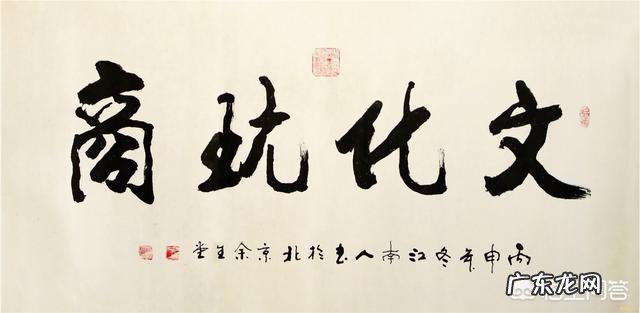 文化玩商
丙申年冬江南人书於北京余生堂
广东龙网
问答